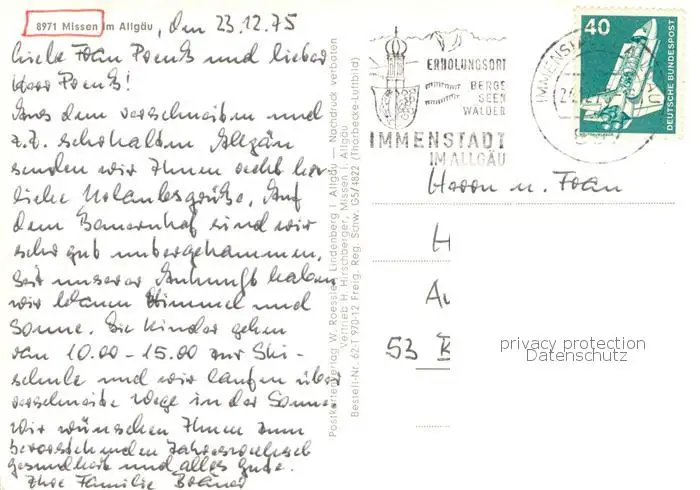 8971 Missen im Allgäu, den 23.12.75
Liebe Frau Preuß und lieber
Herr Preuß!
Aus dem verschneiten und
z.Z. sehr kalten Allgäu
senden wir Ihnen recht herz-
liche Urlaubsgrüße. Auf
dem Bauernhof sind wir
sehr gut untergekommen.
Seit unserer Ankunft haben
wir blauen Himmel und
Sonne. Die Kinder gehen
von 10.00 - 15.00 zur Ski-
schule und wir laufen über
verschneite Wege in der Sonne
Wir wünschen Ihnen zum
bevorstehenden Jahreswechsel
Gesundheit und alles Gute.
Ihre Familie
Postkartenverlag W. Roessler, Lindenberg i. Allgäu — Nachdruck verboten
Vertrieb H. Hirschberger, Missen i. Allgäu
Bestell-Nr. 62-T 970-12 Freig. Reg. Schw. G5/4822 (Thorbecke-Luftbild)
ERHOLUNGSORT
BERGE
SEEN
WÄLDER
IMMENSTADT
IM ALLGÄU
IMMENSTADT
40
DEUTSCHE BUNDESPOST
Herrn u. Frau
H
Au
53 B
privacy protection
Datenschutz